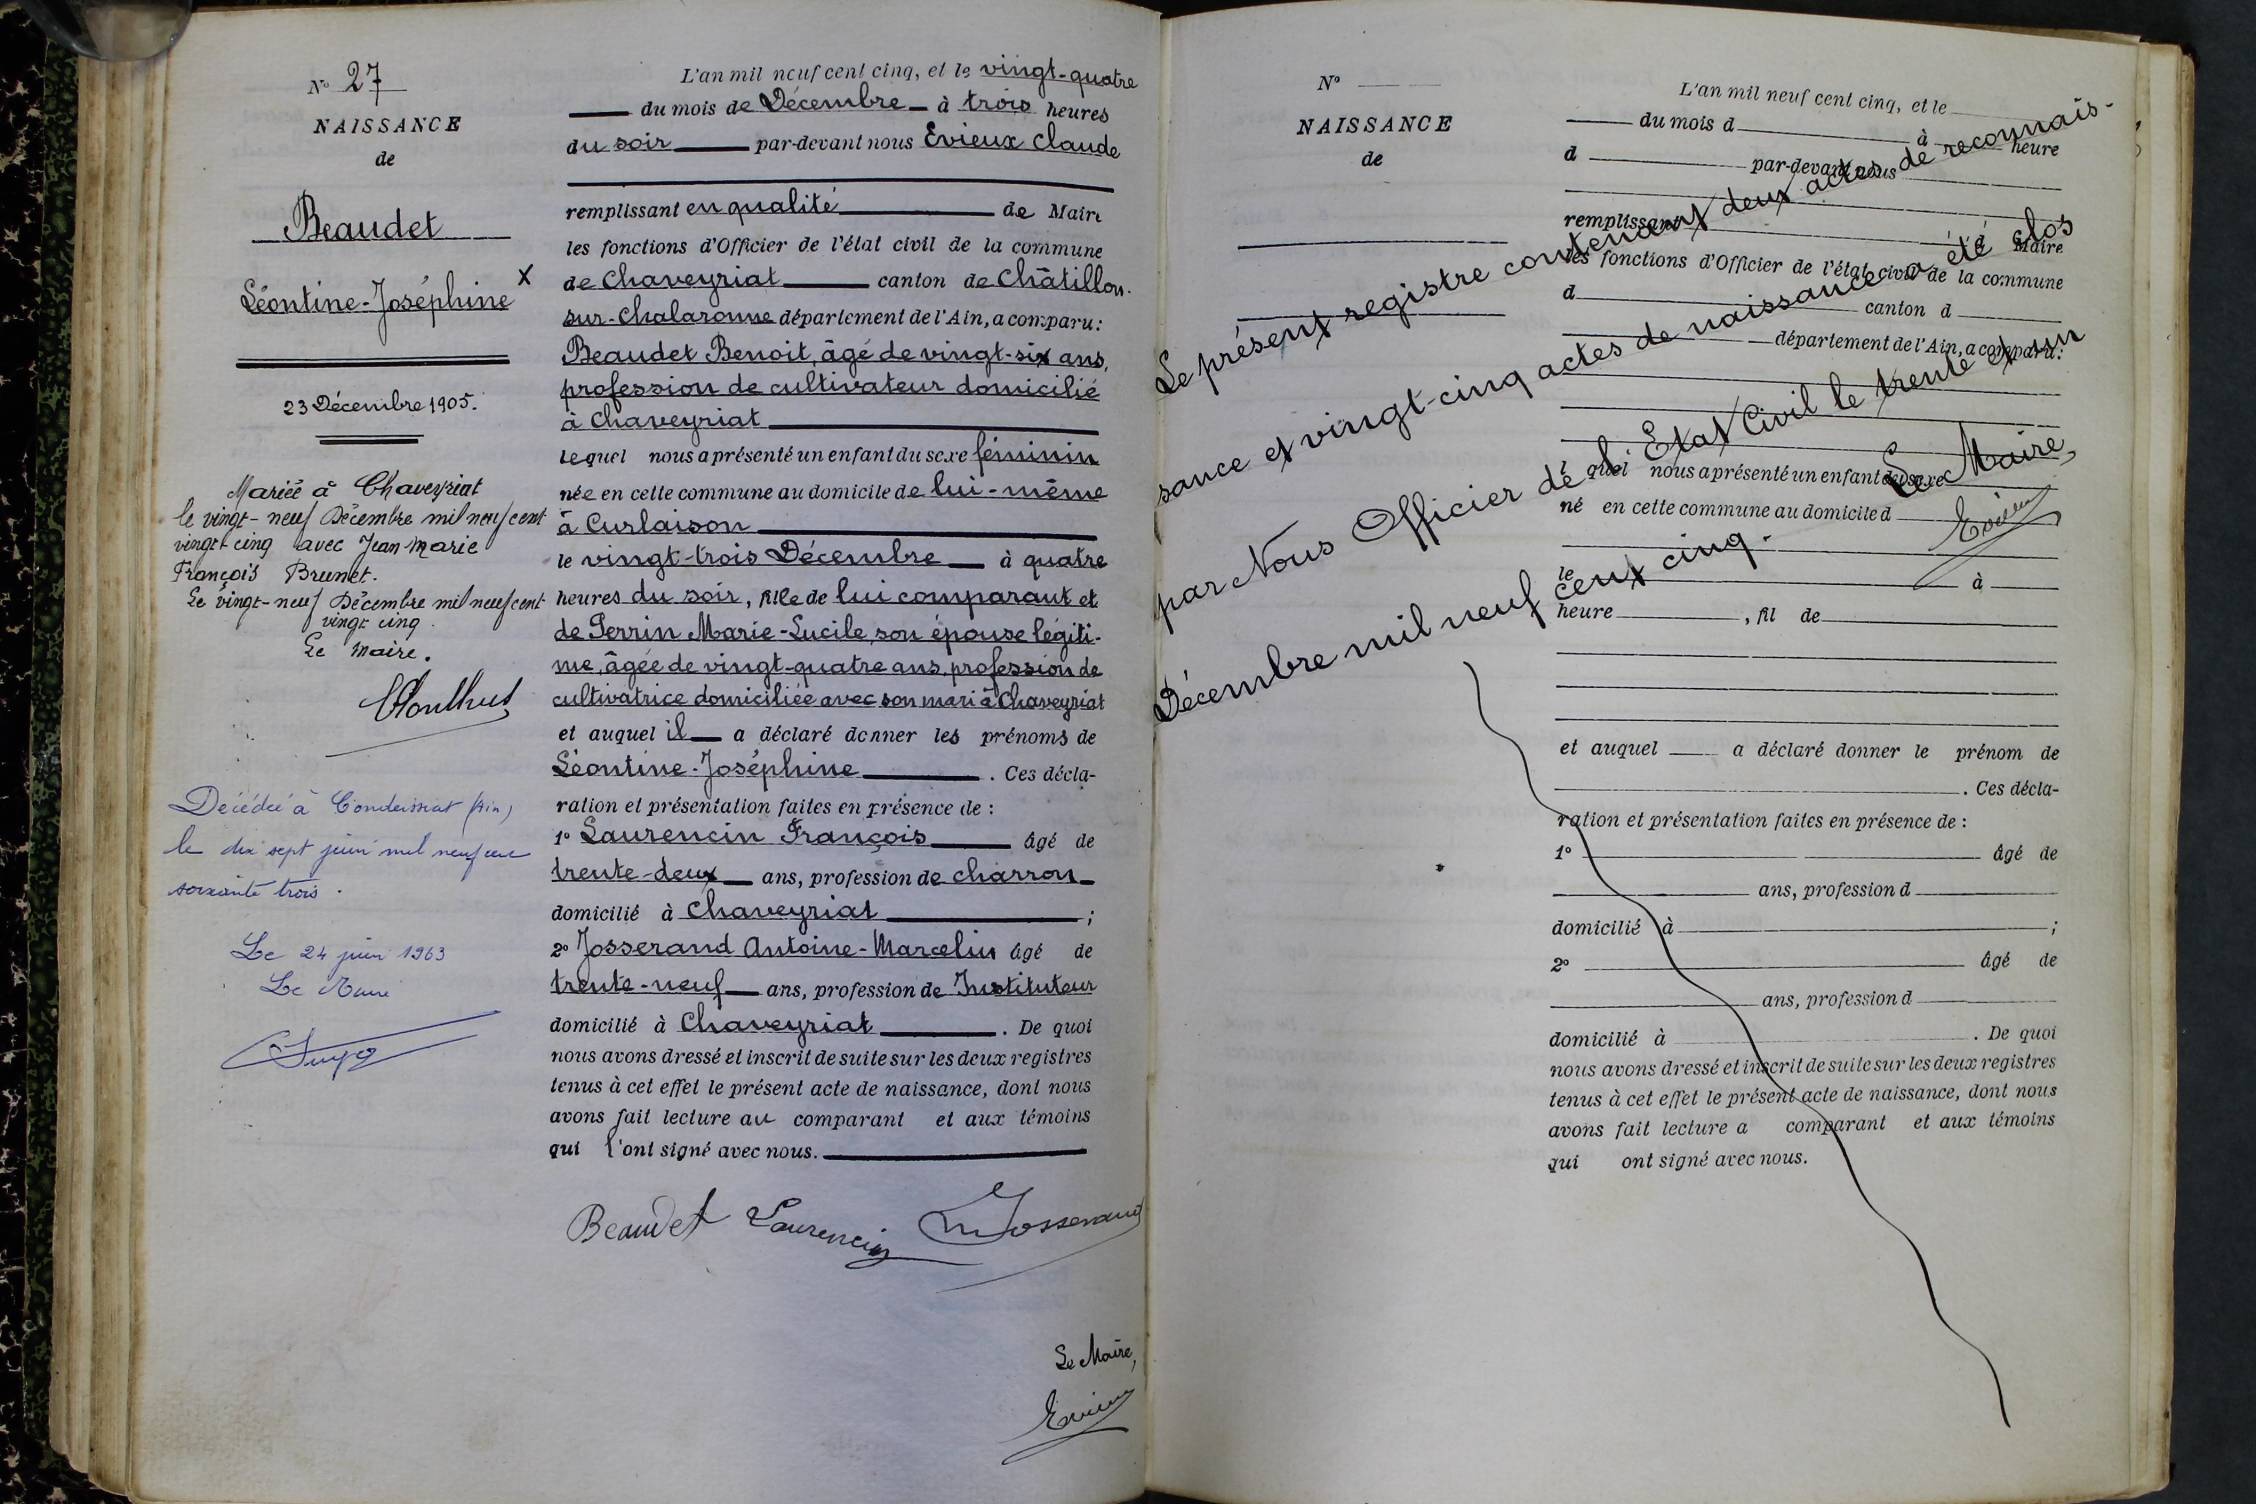 N° 27
NAISSANCE
de
Beaudet
Léontine-Joséphine x
23 Décembre 1905.
Mariée à Chaveyriat
le vingt-neuf Décembre mil neuf cent
vingt cinq avec Jean-Marie
François Brunet.
Le vingt-neuf Décembre mil neuf cent
vingt cinq.
Le Maire.
Décédée à Condeissiat (Ain)
le dix sept juin mil neuf cent
soixante trois.
Le 24 juin 1963
Le Maire
L'an mil neuf cent cinq, et le vingt-quatre
du mois de Décembre à trois heures
du soir par-devant nous Evieux Claude
remplissant en qualité de Maire
les fonctions d'Officier de l'état civil de la commune
de Chaveyriat canton de Châtillon-
sur-Chalaronne département de l'Ain, a comparu:
Beaudet Benoit, âgé de vingt-six ans,
profession de cultivateur domicilié
à Chaveyriat
lequel nous a présenté un enfant du sexe féminin
née en cette commune au domicile de lui-même
à Curlaison
le vingt-trois Décembre à quatre
heures du soir, fille de lui comparant et
de Perrin Marie-Lucile, son épouse légiti-
me, âgée de vingt-quatre ans, profession de
cultivatrice domiciliée avec son mari à Chaveyriat
et auquel il a déclaré donner les prénoms de
Léontine-Joséphine. Ces décla-
ration et présentation faites en présence de :
1° Laurencin François âgé de
trente-deux ans, profession de charron
domicilié à Chaveyriat ;
2° Josserand Antoine-Marcelin âgé de
trente-neuf ans, profession de Instituteur
domicilié à Chaveyriat. De quoi
nous avons dressé et inscrit de suite sur les deux registres
tenus à cet effet le présent acte de naissance, dont nous
avons fait lecture au comparant et aux témoins
qui l'ont signé avec nous.
Beaudet Laurencin Josserand
Le Maire,
Evieux
N°
NAISSANCE
de
L'an mil neuf cent cinq, et le
du mois d à heure
d par-devant nous
remplissant d Maire
les fonctions d'Officier de l'état civil de la commune
d canton d
département de l'Ain, a comparu:
quel nous a présenté un enfant du sexe
né en cette commune au domicile d
le à
heure , fil de
et auquel a déclaré donner le prénom de
. Ces décla-
ration et présentation faites en présence de :
1° âgé de
ans, profession d
domicilié à ;
2° âgé de
ans, profession d
domicilié à . De quoi
nous avons dressé et inscrit de suite sur les deux registres
tenus à cet effet le présent acte de naissance, dont nous
avons fait lecture a comparant et aux témoins
qui ont signé avec nous.
Le présent registre contenant deux actes de reconnais-
sance et vingt-cinq actes de naissance a été clos
par Nous Officier de l'Etat Civil le trente et un
Décembre mil neuf cent cinq.
Le Maire,
Evieux